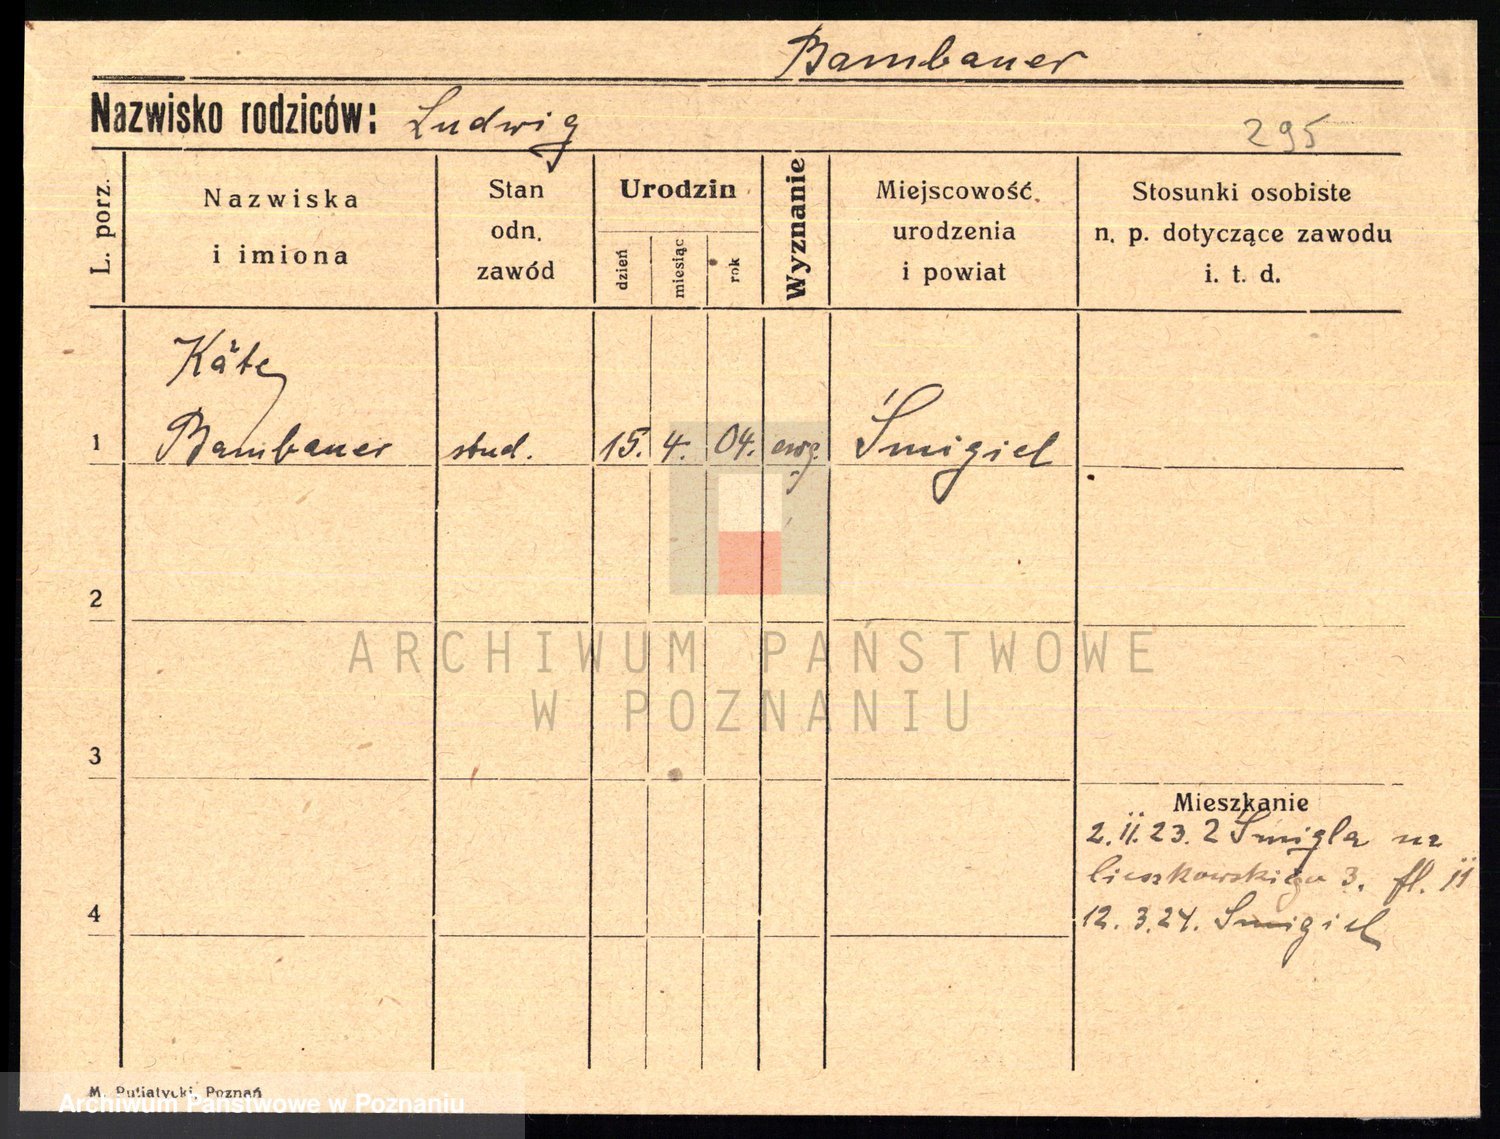 Bambauer
Nazwisko rodziców: Ludwig
295
L. porz.
Nazwiska
i imiona
Stan
odn.
zawód
Urodzin
dzień
miesiąc
rok
Wyznanie
Miejscowość
urodzenia
i powiat
Stosunki osobiste
n. p. dotyczące zawodu
i. t. d.
Käte
1 Bambauer stud. 15. 4. 04. ewg. Śmigiel
2
ARCHIWUM PAŃSTWOWE
W POZNANIU
3
Mieszkanie
2. II. 23. z Śmigla na
3. fl. II
4
12. 3. 24. Śmigiel
M. Putiatycki, Poznań
Archiwum Państwowe w Poznaniu